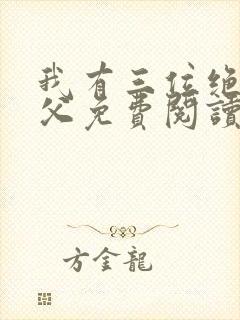 我有三位绝
父免費閱讀
方金龍